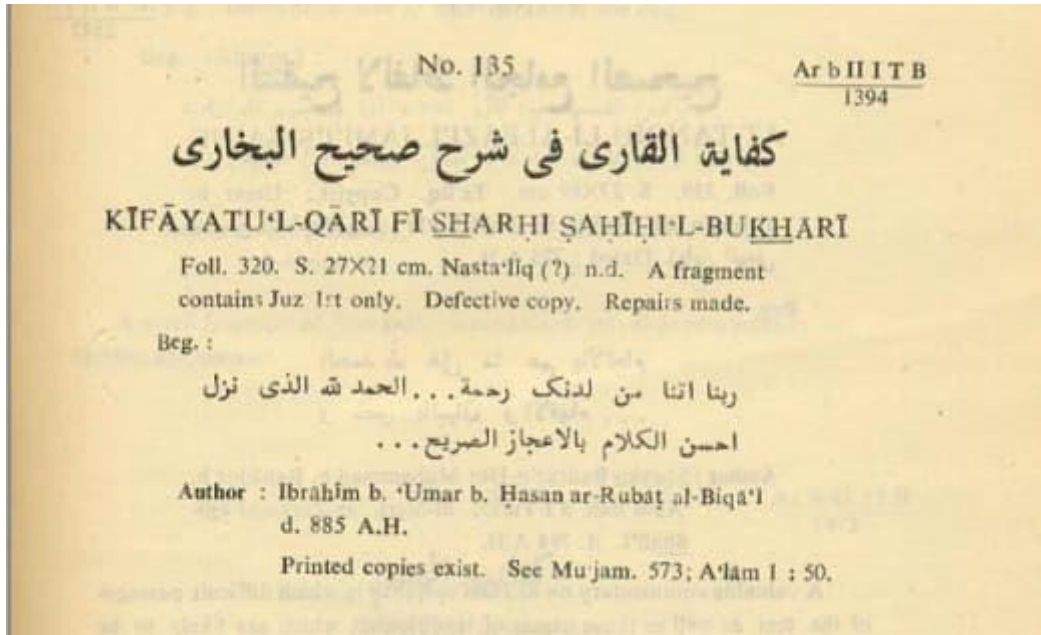 No. 135
Ar b II I T B
1394
كفاية القارى فى شرح صحيح البخارى
KĪFĀYATU‘L-QĀRĪ FĪ SHARḤI ṢAḤĪḤI‘L-BUKHARĪ
Foll. 320. S. 27×21 cm. Nasta‘līq (?) n.d. A fragment
contains Juz 1st only. Defective copy. Repairs made.
Beg. :
ربنا اتنا من لدنک رحمة...الحمد لله الذى نزل
احسن الكلام بالاعجاز الصريح...
Author : Ibrāhīm b. ‘Umar b. Ḥasan ar-Rubāṭ al-Biqā‘ī
d. 885 A.H.
Printed copies exist. See Mu‘jam. 573; A‘lām I : 50.